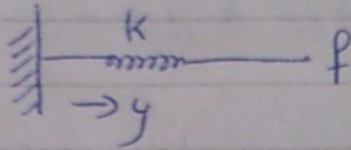 K
f
→ y